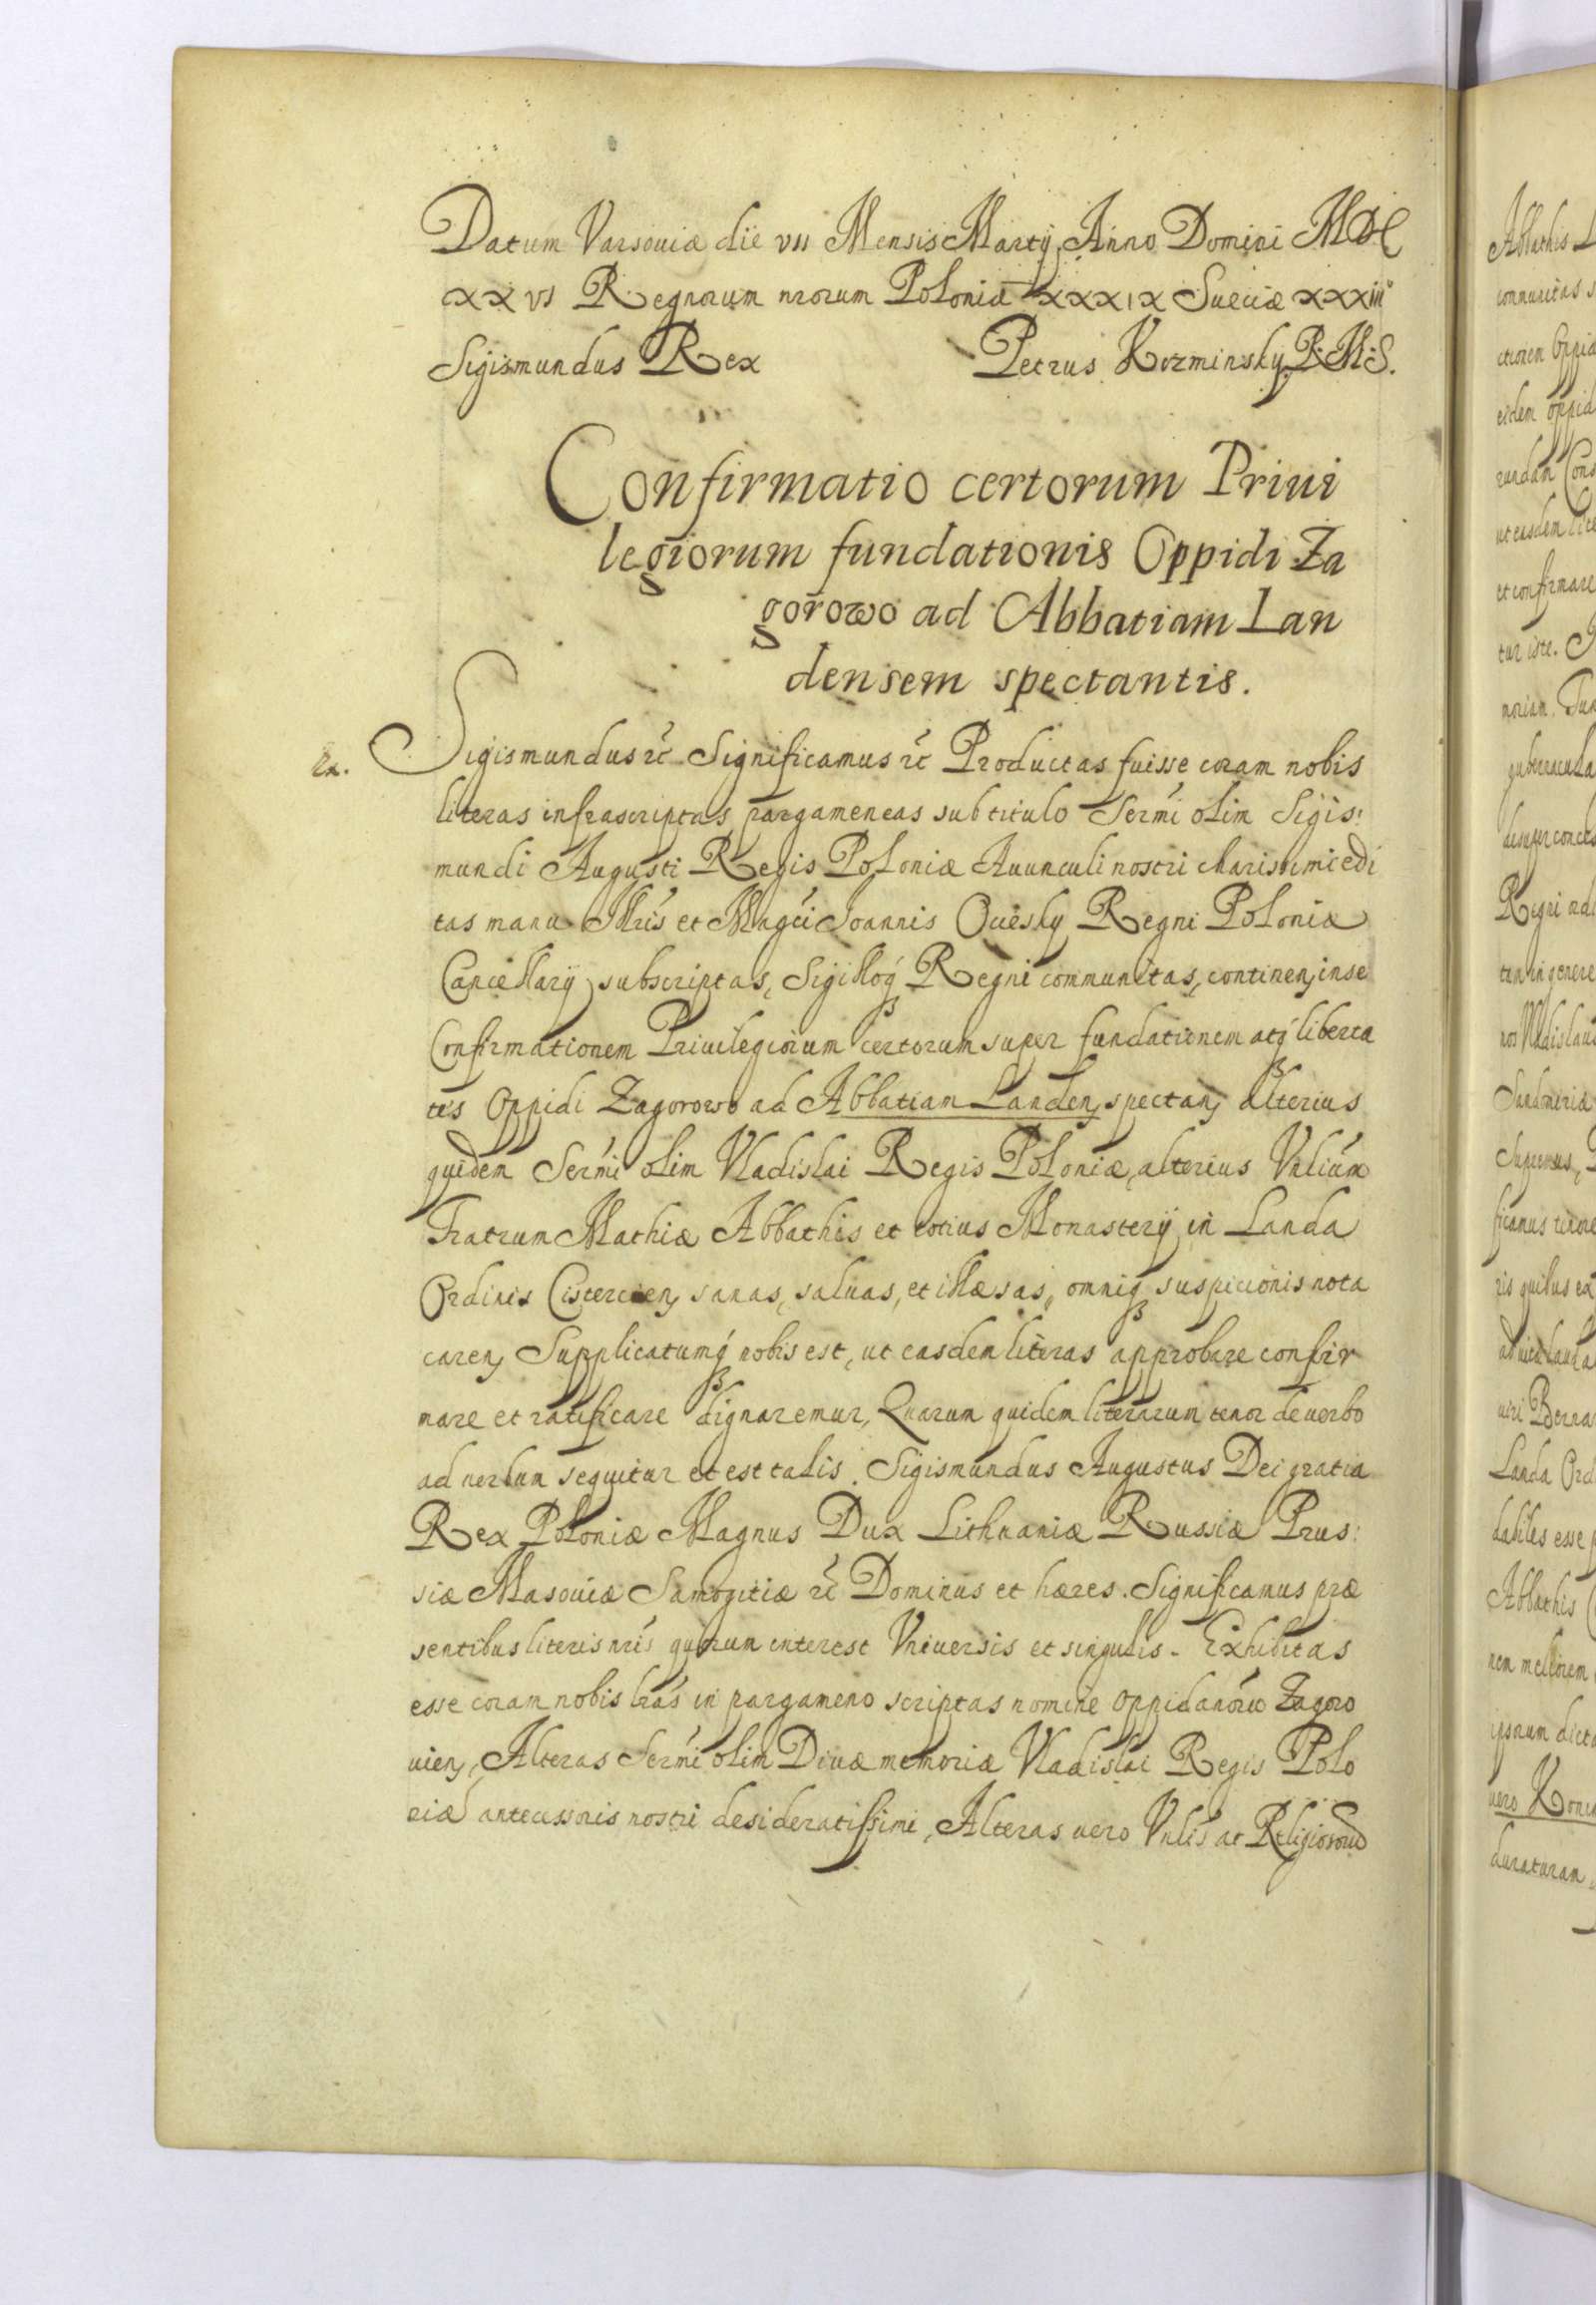 Datum Varsouiæ die VII Mensis Martij Anno Domini MDC
XXVI Regnorum nrorum Poloniæ XXXIX Sueciæ XXXIII
Sigismundus Rex Petrus Kozminsky R.M.S.
Confirmatio certorum Priui
legiorum fundationis Oppidi Za
gorowo ad Abbatiam Lan
densem spectantis.
Ex. Sigismundus rc̃ Significamus rc̃ Productas fuisse coram nobis
literas infrascriptas pargameneas sub titulo Sermi olim Sigis:
mundi Augusti Regis Poloniæ Auunculi nostri charissimi edi
tas manu Illris et Magci Joannis Ociesky Regni Poloniæ
Cancellarij subscriptas, Sigilloq̃ Regni communitas, continen, in se
Confirmationem Priuilegiorum certorum super fundationem atq̃ liberta
tes Oppidi Zagorowo ad Abbatiam Landen, spectan, alterius
quidem Sermi olim Vladislai Regis Poloniæ, alterius Vnlium
Fratrum Mathiæ Abbathis et totius Monasterij in Landa
Ordinis Cistercien, sanas, saluas, et illæsas, omniq̃ suspicionis nota
caren, Supplicatumq̃ nobis est, ut easdem literas approbare confir
mare et ratificare dignaremur, Quarum quidem literarum tenor de uerbo
ad uerbum sequitur et est talis. Sigismundus Augustus Dei gratia
Rex Poloniæ Magnus Dux Lithuaniæ Russiæ Prus:
siæ Masouiæ Samogitiæ rc̃ Dominus et hæres. Significamus præ
sentibus literis nris quorum interest Vniuersis et singulis. Exhibitas
esse coram nobis lras in pargameno scriptas nomine oppidanorũ Zagoro
uien, Alteras Sermi olim Diuæ memoriæ Vladislai Regis Polo
niæ antecessoris nostri desideratissimi, Alteras uero Vnlis ac Religiosorũ